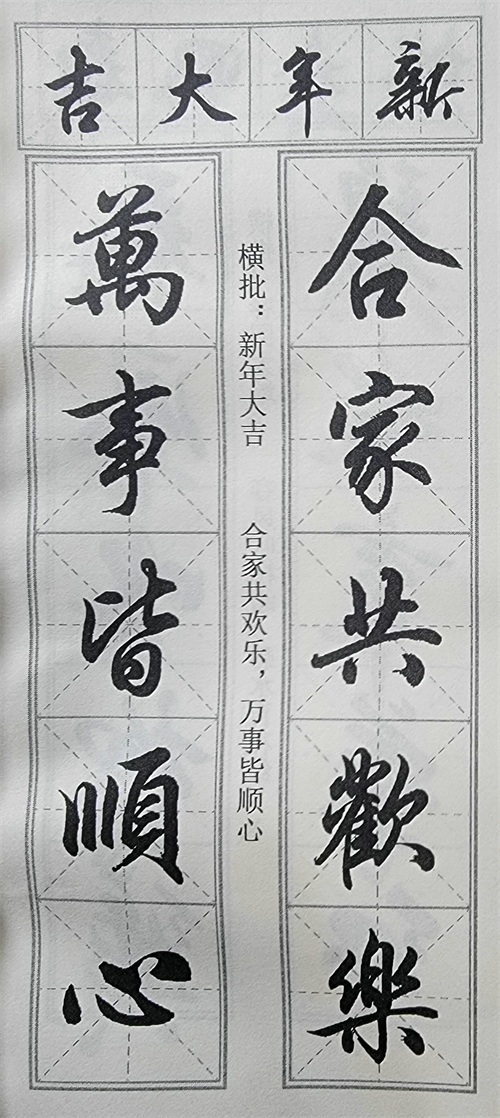 新年大吉
合家共歡樂
横批：新年大吉　合家共欢乐，万事皆顺心
萬事皆順心